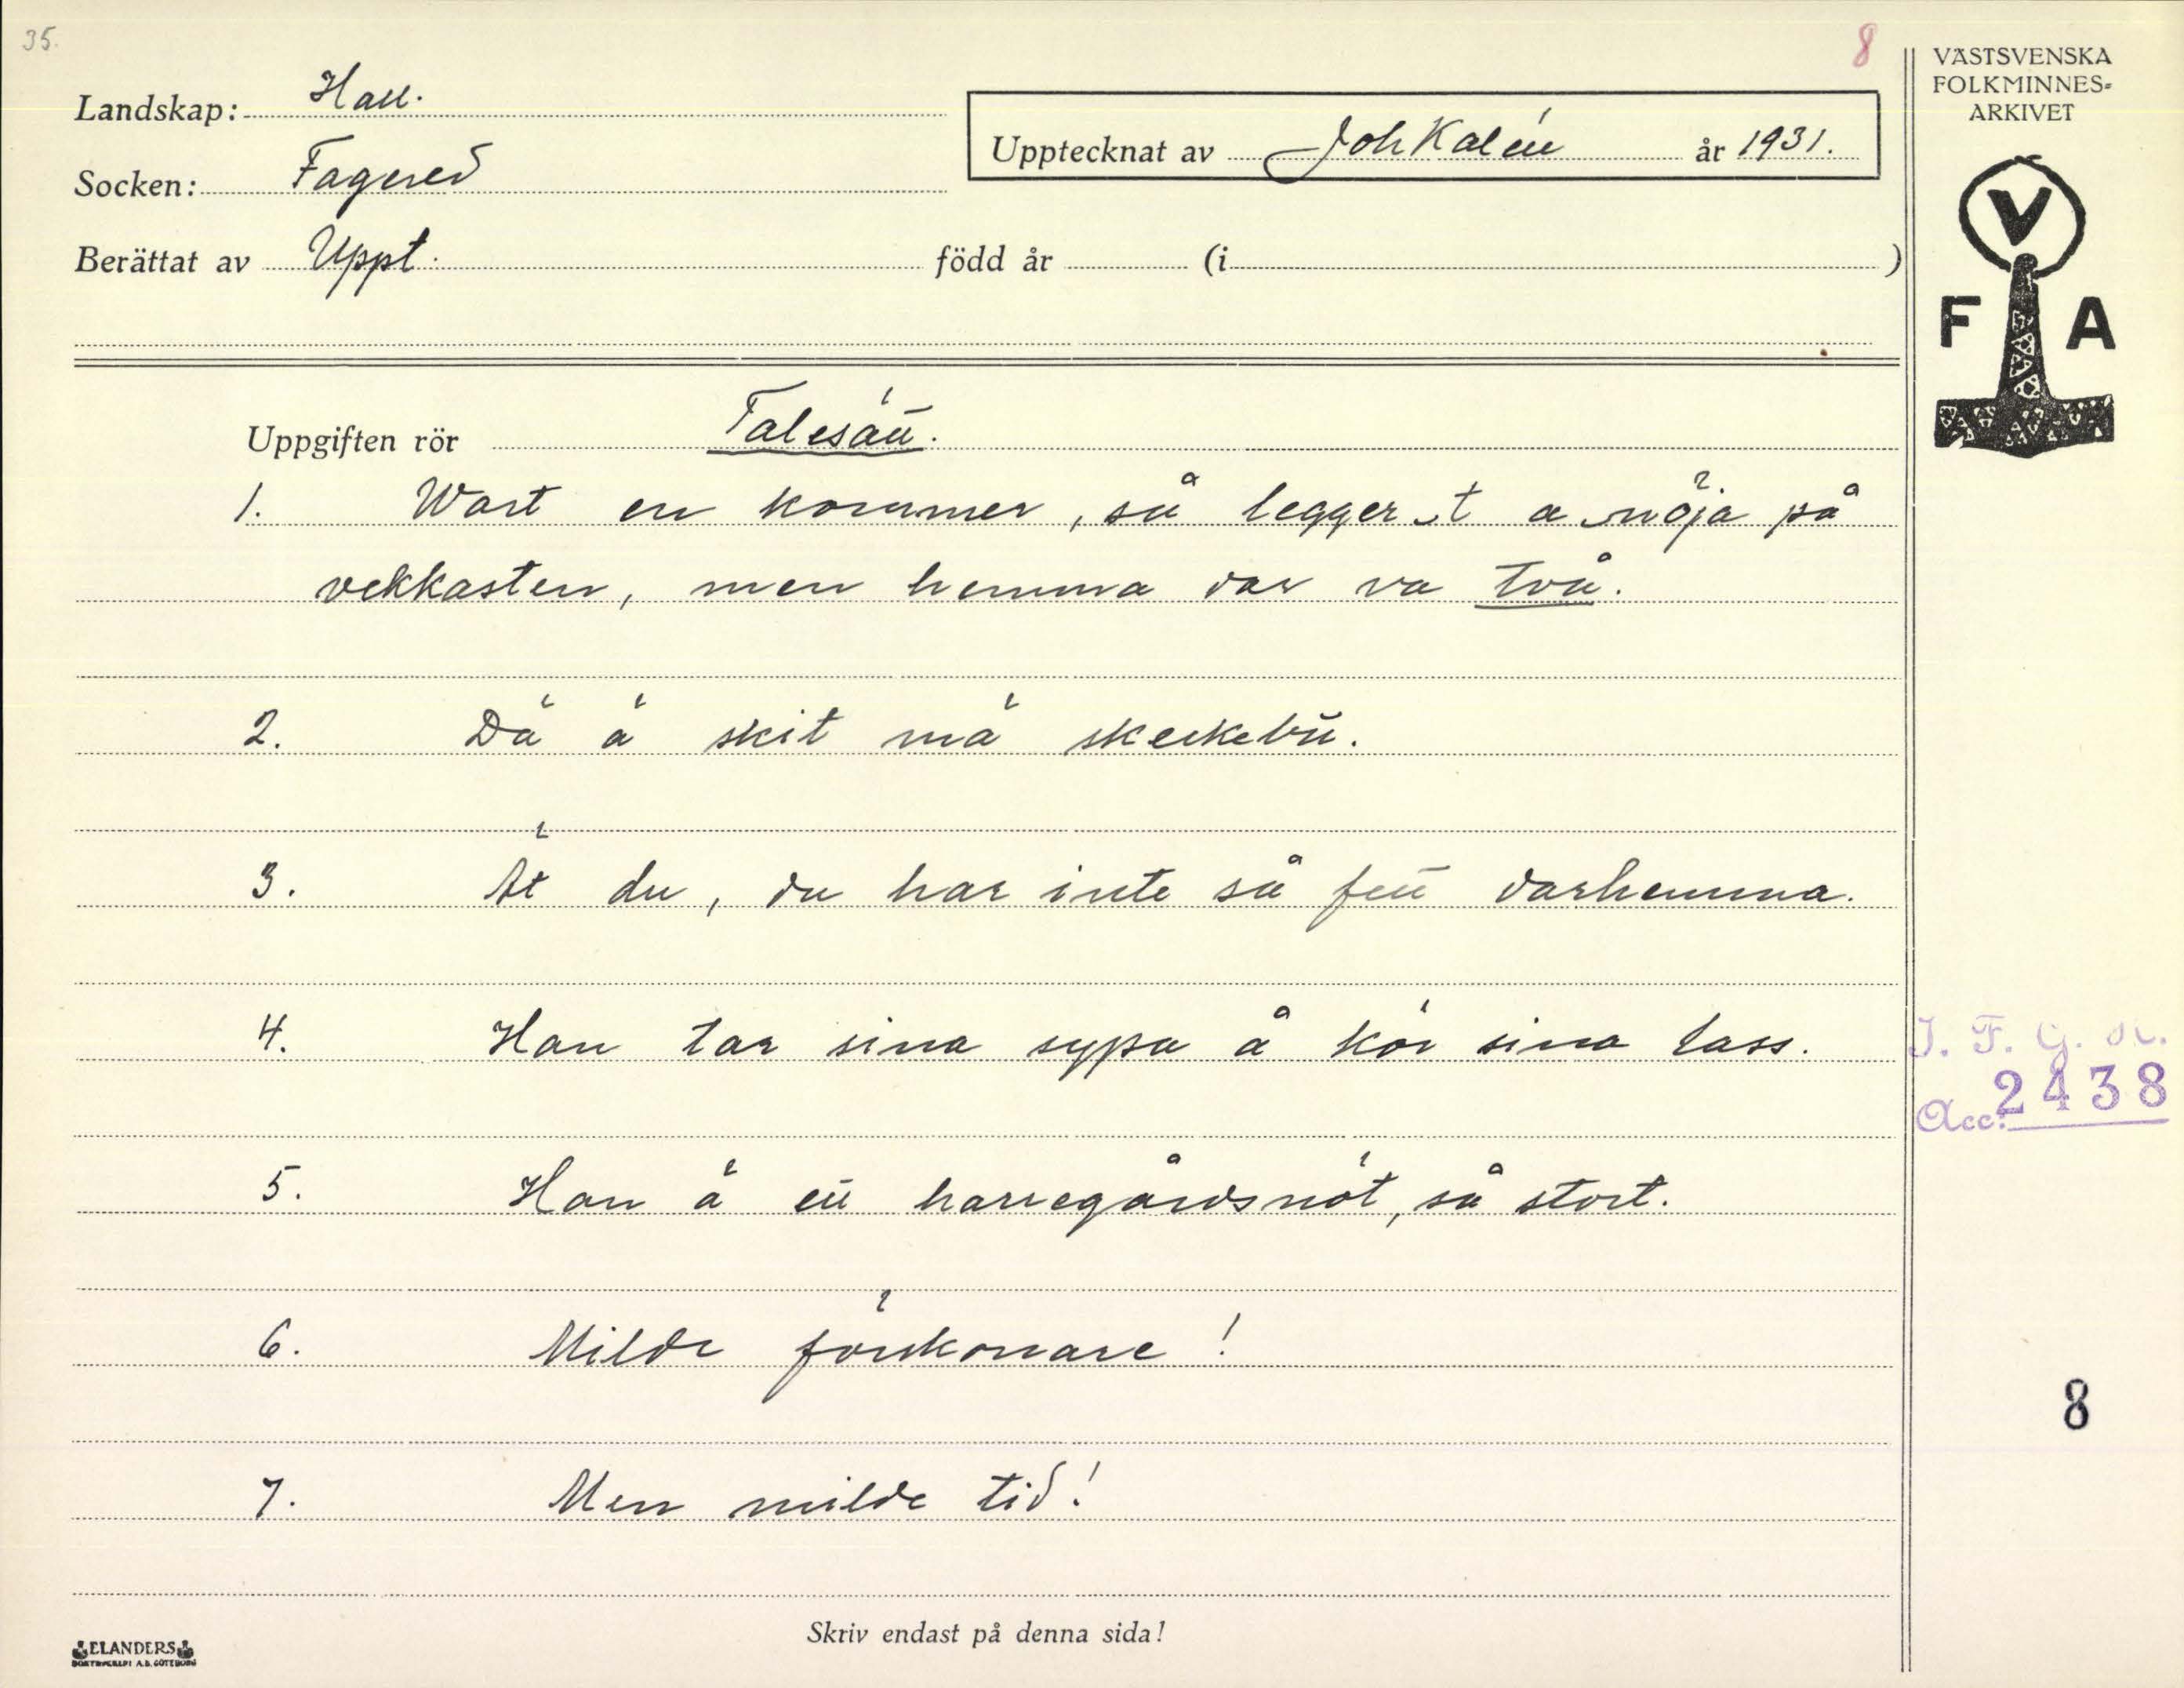 35.
8
VÄSTSVENSKA
FOLKMINNES=
ARKIVET
Landskap: Hall.
Upptecknat av Joh Kalén år 1931.
Socken: Fagered
Berättat av Uppt. född år (i )
V
F A
Uppgiften rör Talesätt.
1. Wart en kommer, så legger t a nöja på
vekkasten, men hemma var va två.
2. Dä ä skit mä
3. Ät du, du har inte så fett darhemma.
4. Han tar sina sypa å kör sina lass.
5. Han ä ett harregårdsnöt, så stort.
6. Milde förskonare!
7. Men milde tid!
Acc. 2438
8
Skriv endast på denna sida!
ELANDERS
BOKTRYCKERI A.B. GÖTEBORG